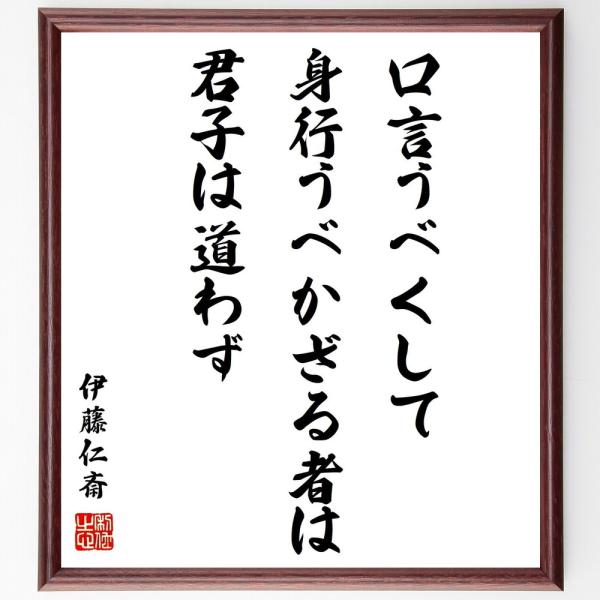 口言うべくして
身行うべかざる者は
君子は道わず
伊藤仁斎